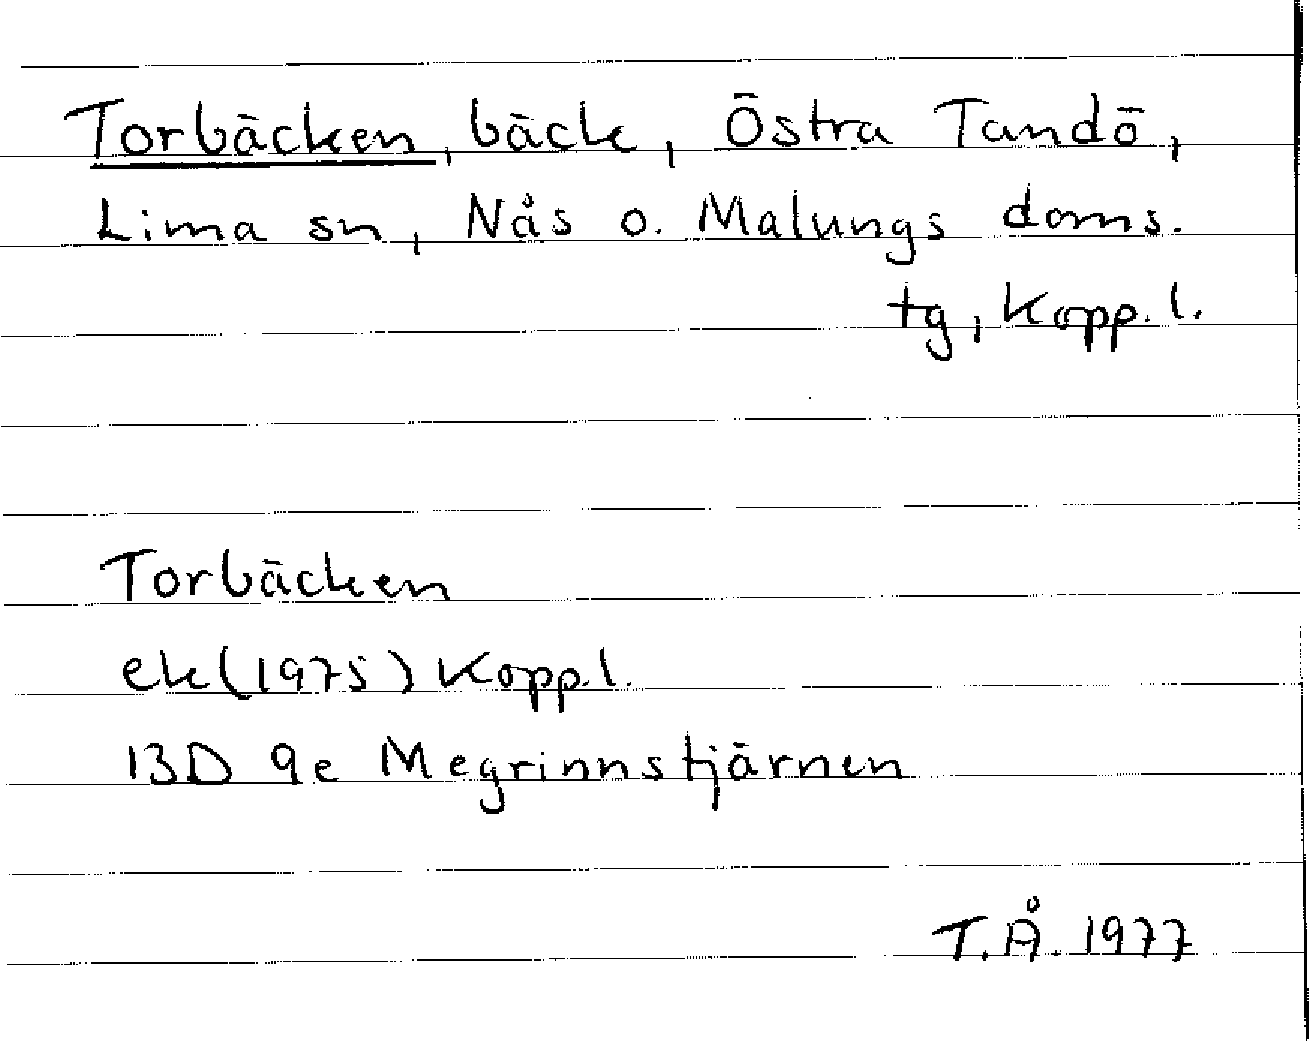 Torbäcken, bäck, Östra Tandö,
Lima sn, Nås o. Malungs doms.
tg, Kopp. l.
Torbäcken
ek (1975) Kopp.l.
13D 9e Megrinnstjärnen
T.Å. 1977